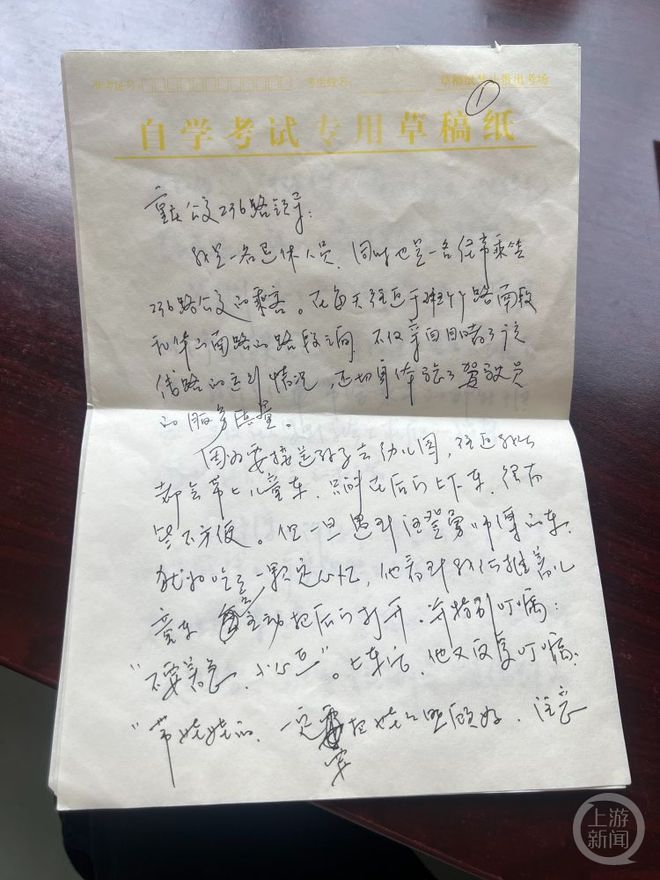 准考证号
考生姓名
①
自学考试专用草稿纸
重庆公交236路领导：
我是一名退休人员，同时也是一名经常乘坐
236路公交的乘客。在每天往返于 路南段
和华山南路的路段之间，不仅亲自目睹了该
线路的运行情况，还切身体验了驾驶员
的服务质量。
因为要接送孙子去幼儿园，往返我们
都会带上儿童车，只能在后门上下车，很不
方便。但一旦遇到 师傅的车，
就如吃了一颗定心丸，他看到我们推着儿
童车 主动把后门打开，并特别叮嘱：
“不要着急，小心点”。上车后，他又反复叮嘱：
“带娃娃的，一定要把娃儿照顾好，注意
上游新闻